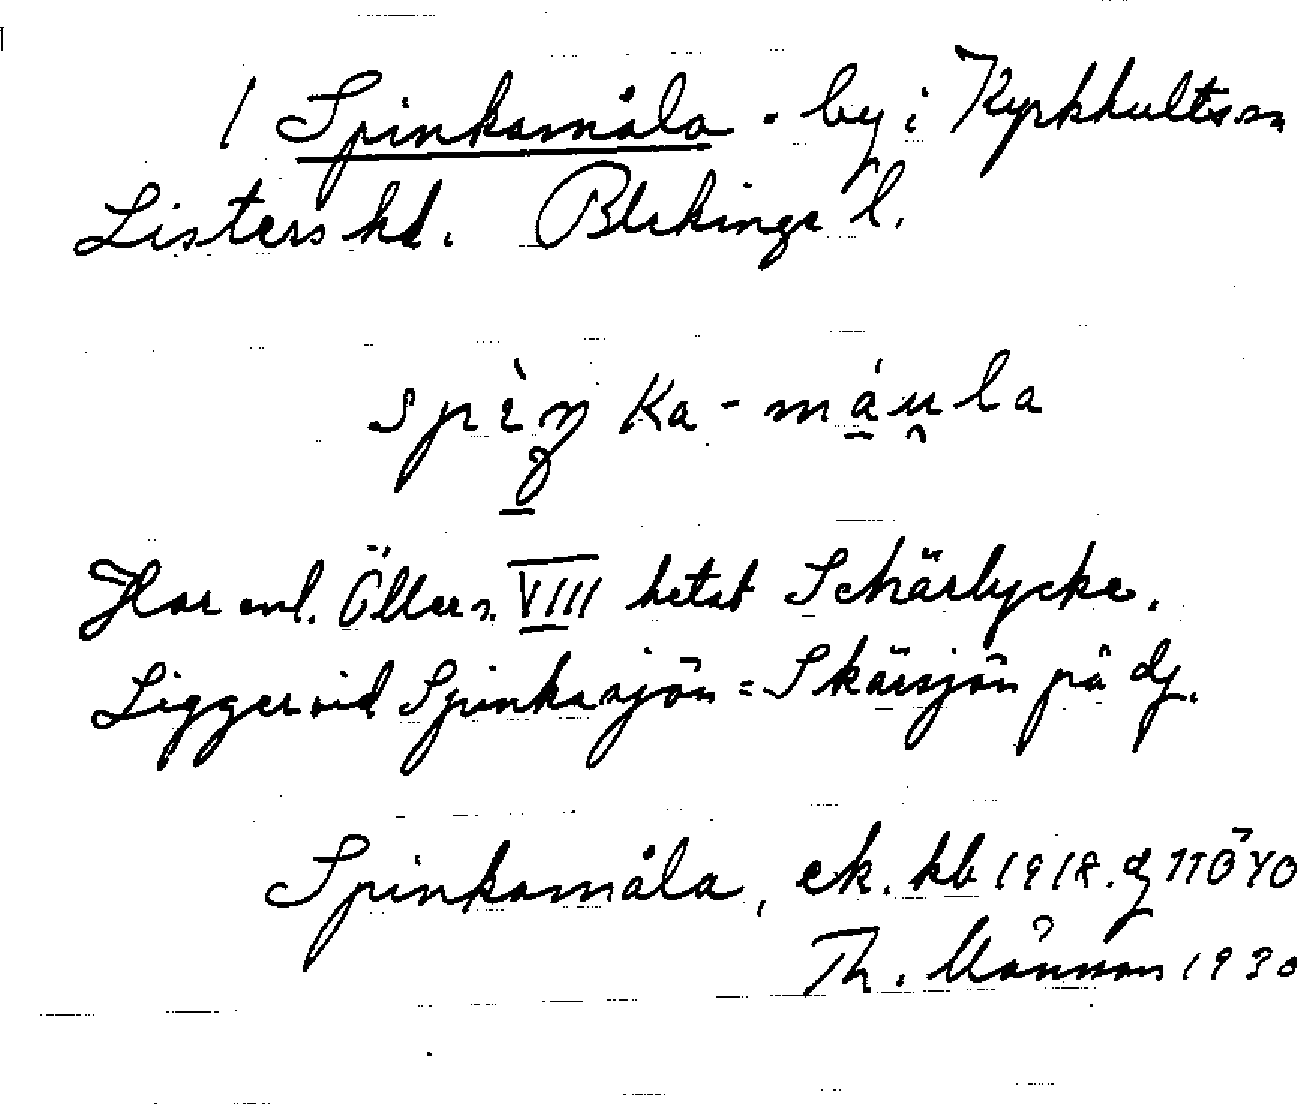 1 Spinkamåla - by i Kyrkhults sn
Listers hd. Blekinge l.
spìŋka-máu̯la
Har enl. Öllers. VIII hetat Schärlycke.
Ligger vid Spinkasjön = Skärsjön på dj.
Spinkamåla, ek. kb 1918. dj 11Ö40
Th. Månsson 1930